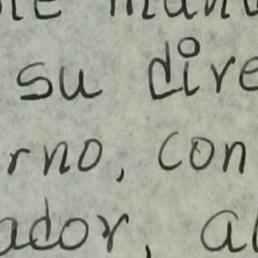 su dire
rno, con
ador, a